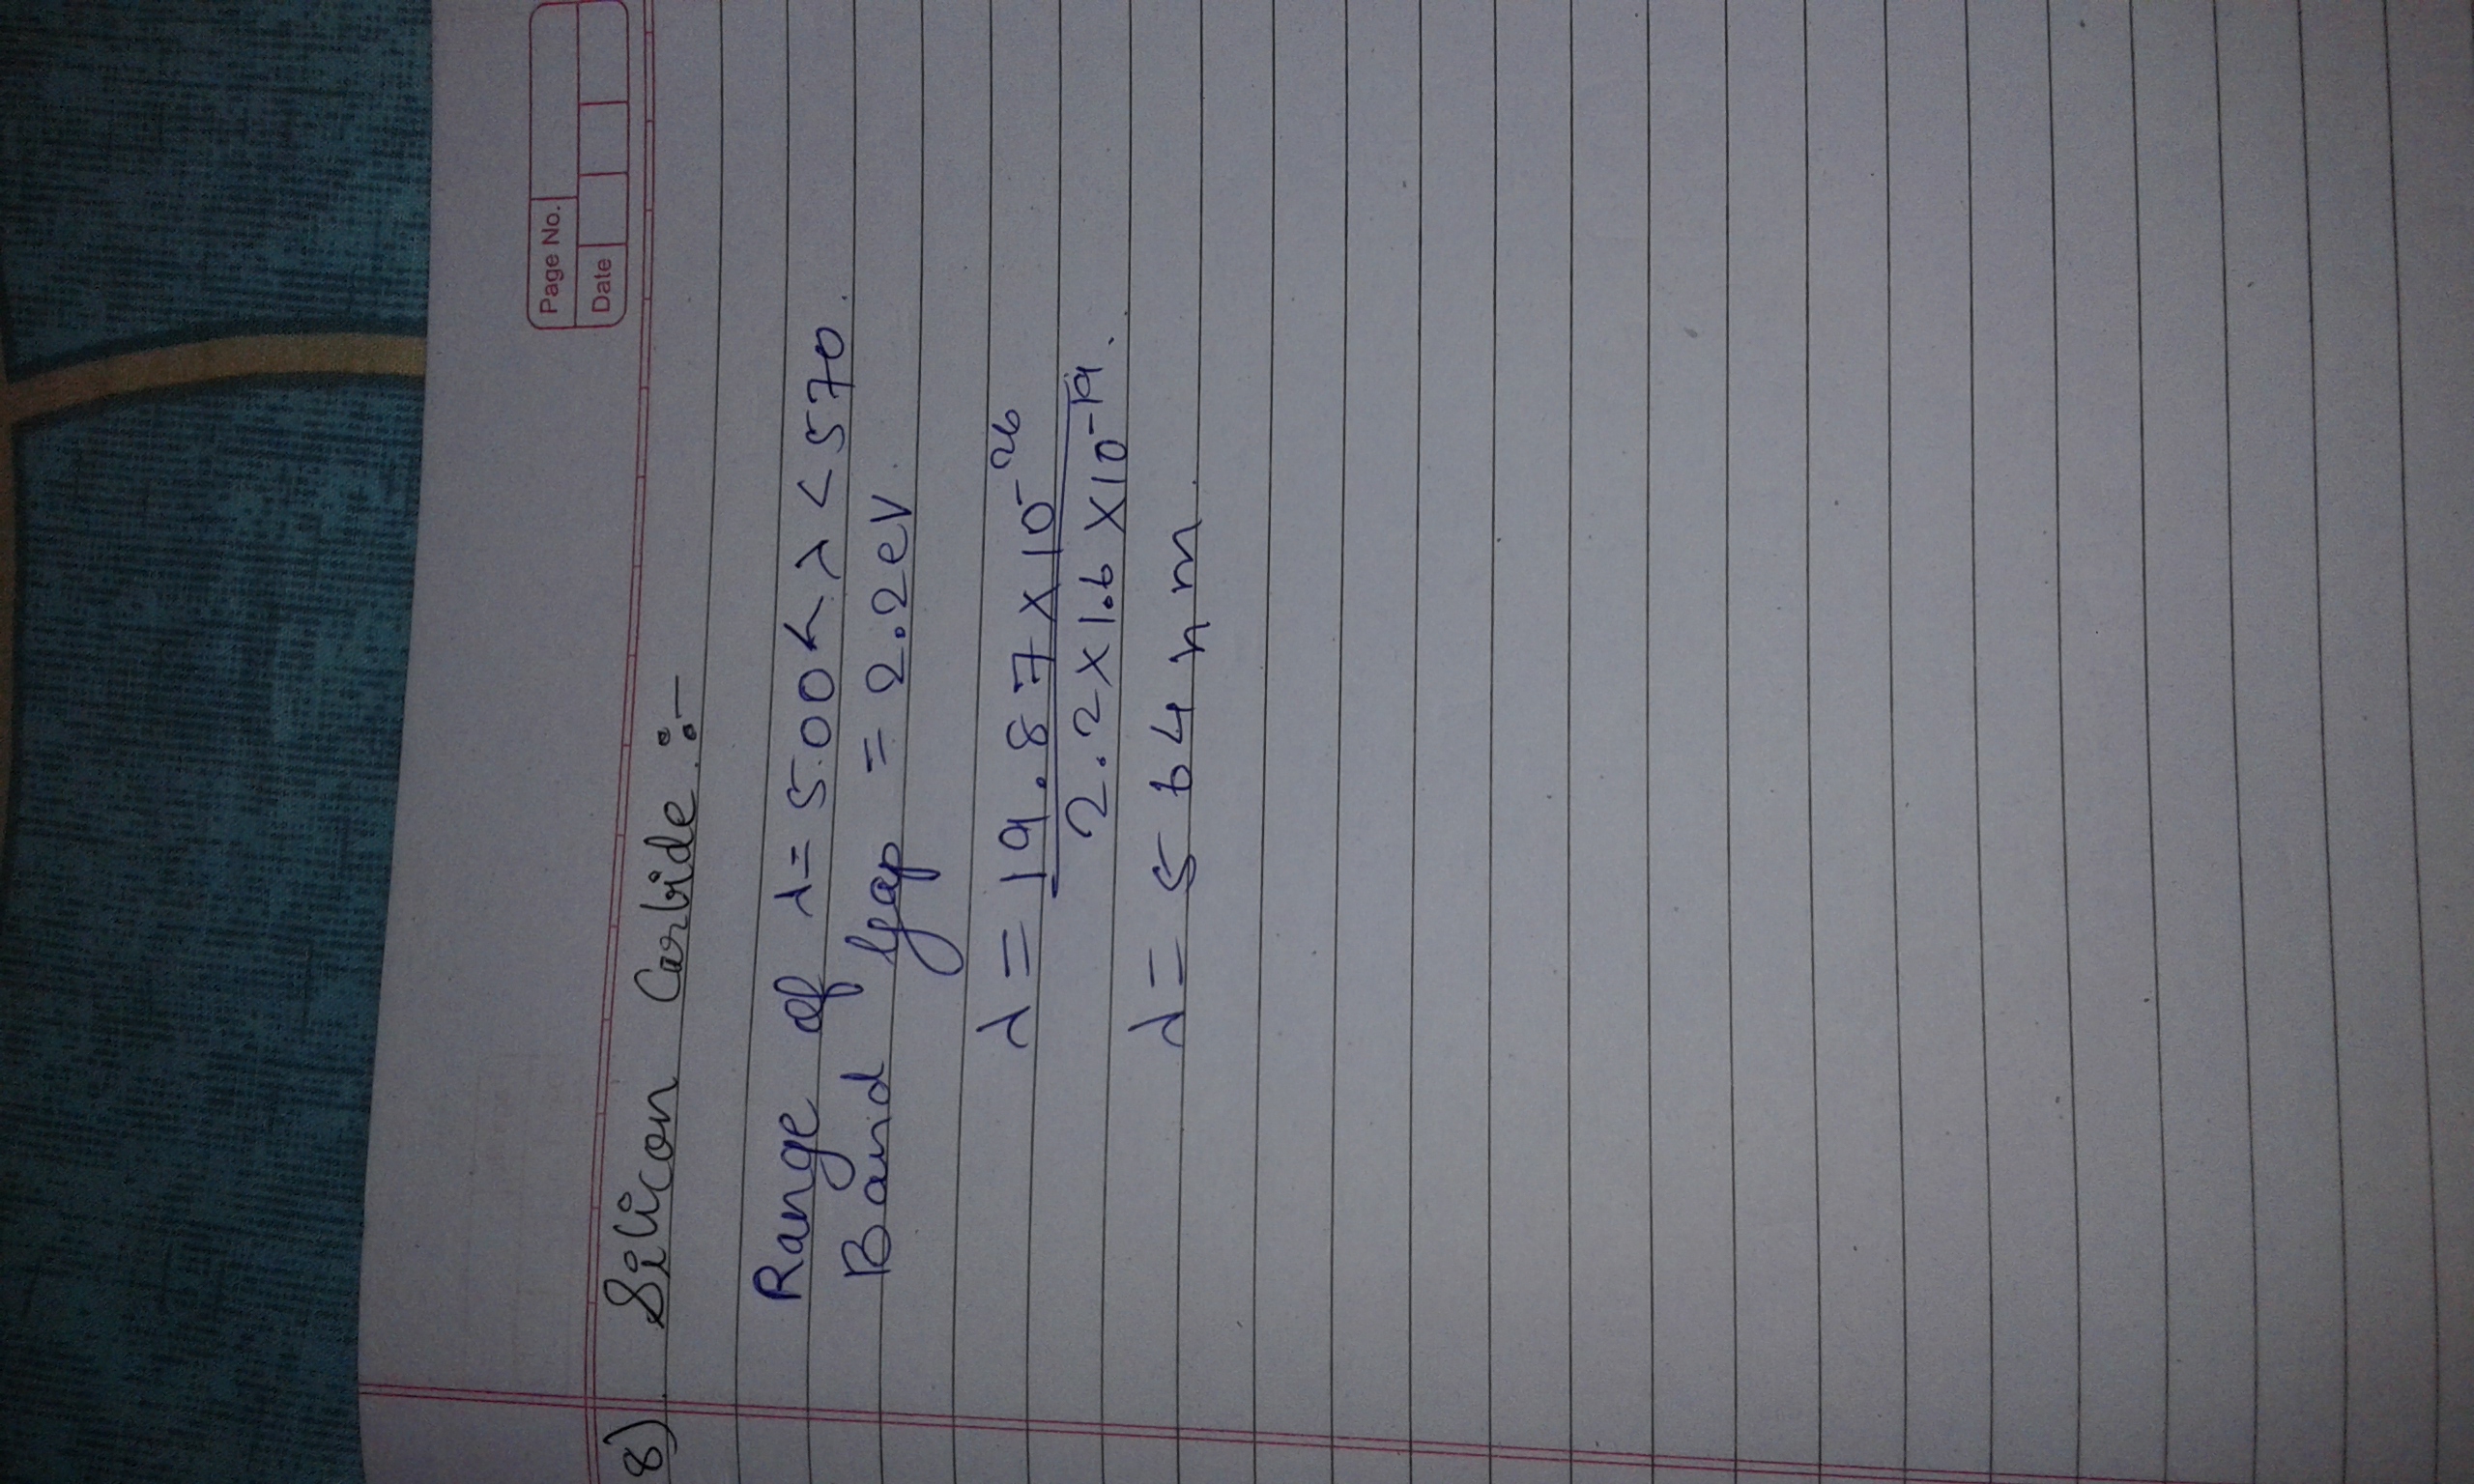 Page No.
Date
8) Silicon Carbide :-
Range of λ = 500 < λ < 570.
Band gap = 2.2eV.
λ = 19.87 × 10⁻²⁶
2.2 × 1.6 × 10⁻¹⁹.
λ = 564 nm.